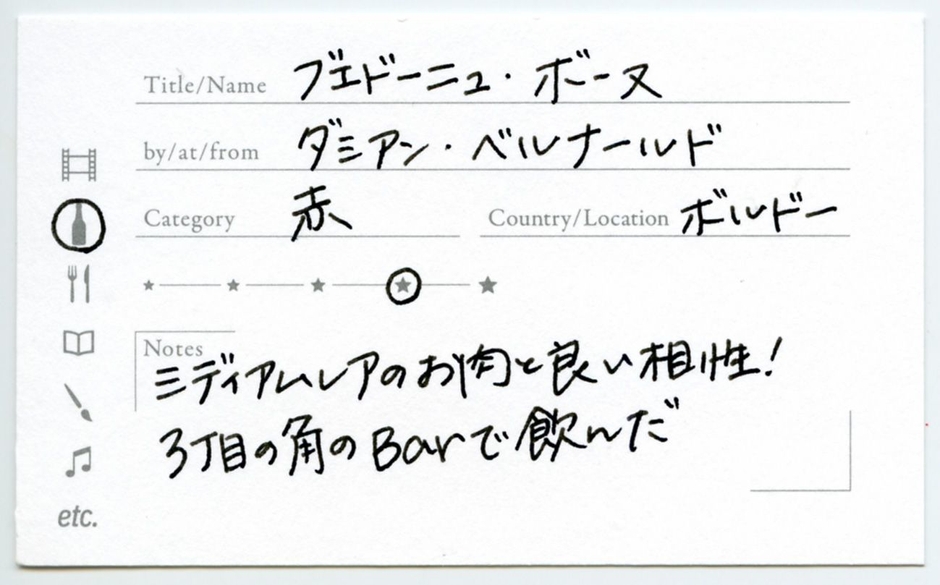 Title/Name ブエドーニュ・ボーヌ
by/at/from ダミアン・ベルナールド
Category 赤 Country/Location ボルドー
Notes
ミディアムレアのお肉と良い相性!
3丁目の角のBarで飲んだ
etc.